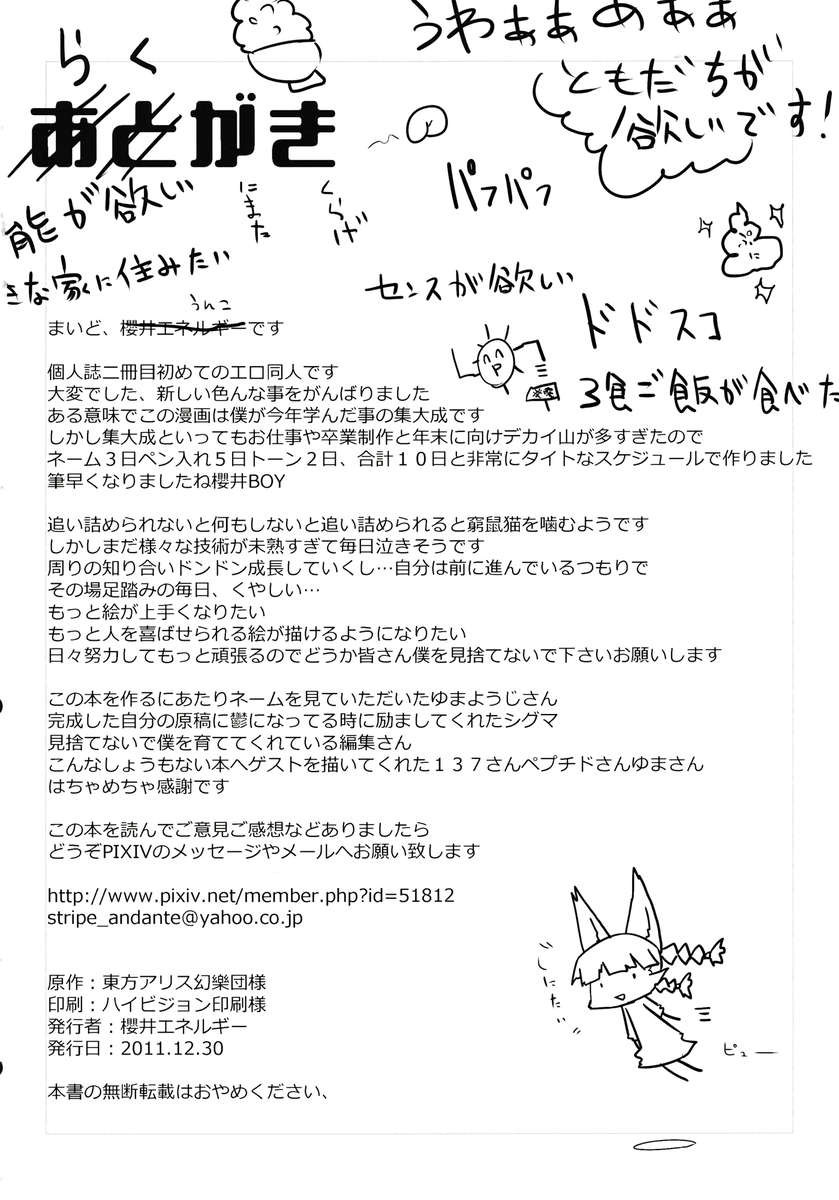 うわぁぁぁめぁぁ
ともだちが
欲しいです！
らく
あとがき
能が欲しい
にまた
くらげ
パフパフ
きな家に住みたい
センスが欲しい
ドドスコ
3食ご飯が食べた
うんこ
まいど、櫻井エネルギーです
個人誌二冊目初めてのエロ同人です
大変でした、新しい色んな事をがんばりました
ある意味でこの漫画は僕が今年学んだ事の集大成です
しかし集大成といってもお仕事や卒業制作と年末に向けデカイ山が多すぎたので
ネーム３日ペン入れ５日トーン２日、合計１０日と非常にタイトなスケジュールで作りました
筆早くなりましたね櫻井BOY
追い詰められないと何もしないと追い詰められると窮鼠猫を噛むようです
しかしまだ様々な技術が未熟すぎて毎日泣きそうです
周りの知り合いドンドン成長していくし…自分は前に進んでいるつもりで
その場足踏みの毎日、くやしい…
もっと絵が上手くなりたい
もっと人を喜ばせられる絵が描けるようになりたい
日々努力してもっと頑張るのでどうか皆さん僕を見捨てないで下さいお願いします
この本を作るにあたりネームを見ていただいたゆまようじさん
完成した自分の原稿に鬱になってる時に励ましてくれたシグマ
見捨てないで僕を育ててくれている編集さん
こんなしょうもない本へゲストを描いてくれた１３７さんペプチドさんゆまさん
はちゃめちゃ感謝です
この本を読んでご意見ご感想などありましたら
どうぞPIXIVのメッセージやメールへお願い致します
http://www.pixiv.net/member.php?id=51812
stripe_andante@yahoo.co.jp
じにたい
ピュー
原作：東方アリス幻樂団様
印刷：ハイビジョン印刷様
発行者：櫻井エネルギー
発行日：2011.12.30
本書の無断転載はおやめください、